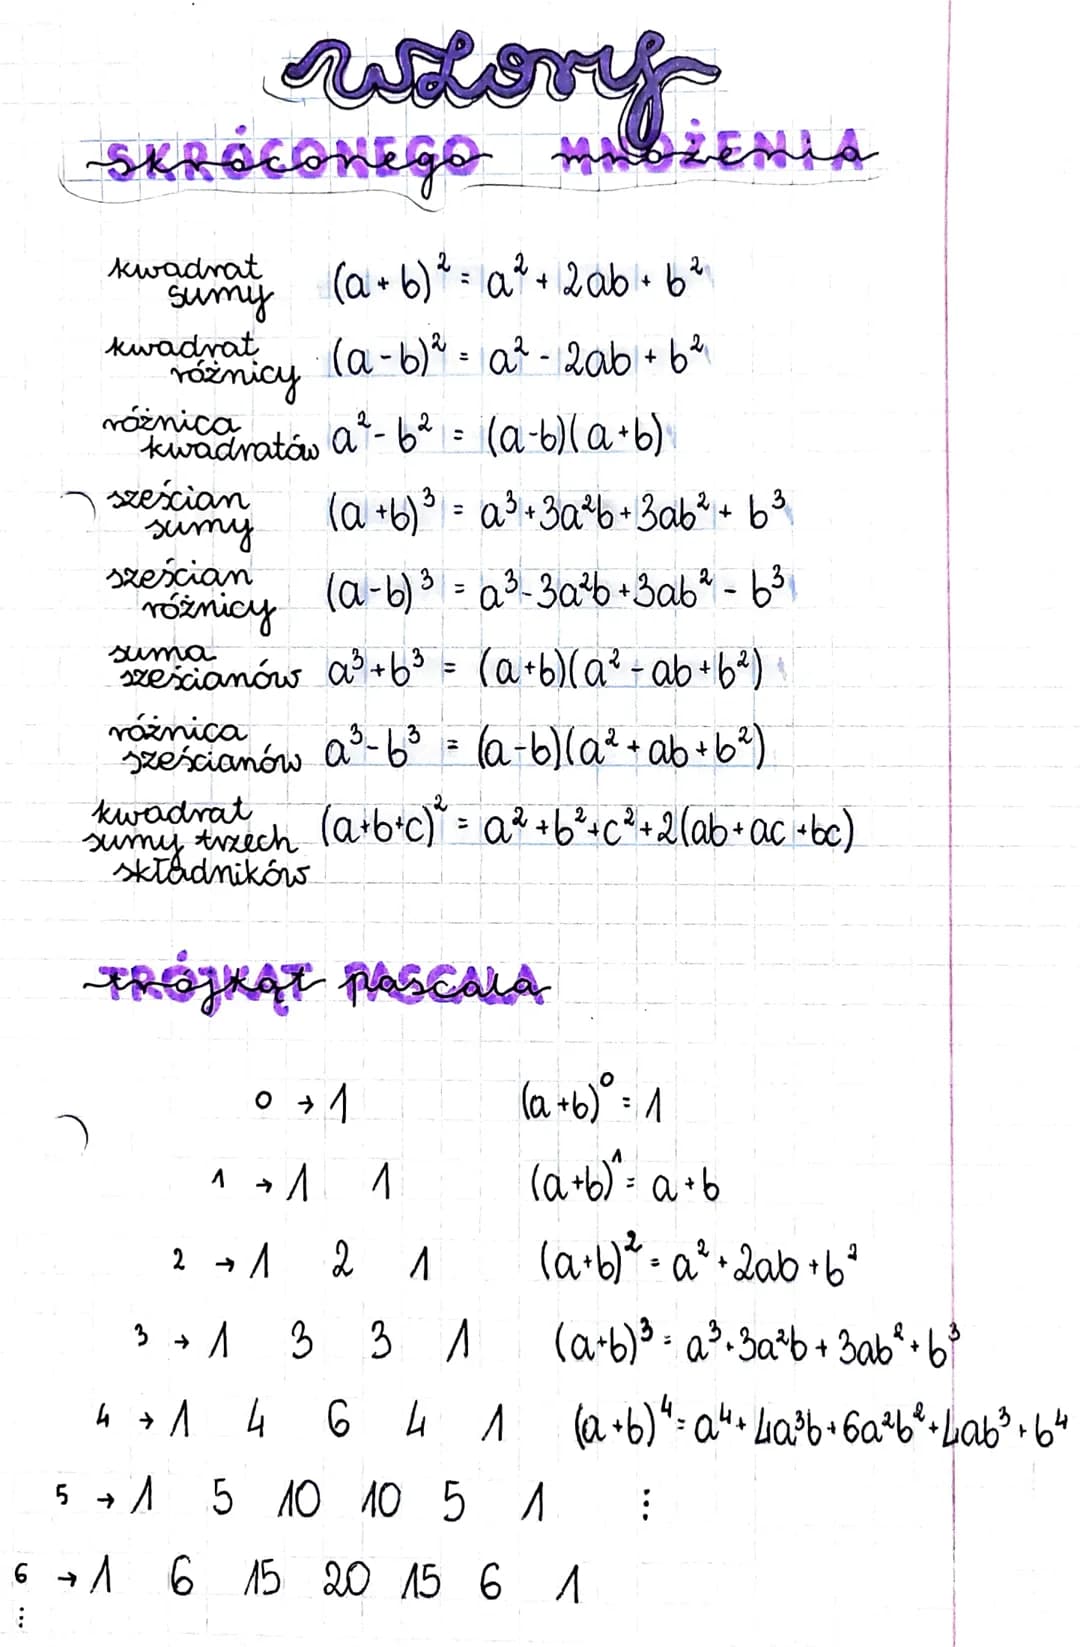 wzory
SKRÓCONEGO MNOŻENIA
kwadrat
sumy (a+b)² = a² + 2ab + b²
kwadrat
różnicy (a-b)² = a² - 2ab + b²
różnica
kwadratów a² - b² = (a-b)(a+b)
sześcian
sumy (a+b)³ = a³+3a²b+3ab²+b³
sześcian
różnicy (a-b)³ = a³-3a²b+3ab²-b³
suma
sześcianów a³+b³ = (a+b)(a²-ab+b²)
różnica
sześcianów a³-b³ = (a-b)(a²+ab+b²)
kwadrat
sumy trzech (a+b+c)² = a²+b²+c²+2(ab+ac+bc)
składników
TRÓJKĄT PASCALA
0 → 1 (a+b)⁰ = 1
1 → 1 1 (a+b)¹ = a+b
2 → 1 2 1 (a+b)² = a²+2ab+b²
3 → 1 3 3 1 (a+b)³ = a³+3a²b+3ab²+b³
4 → 1 4 6 4 1 (a+b)⁴ = a⁴+4a³b+6a²b²+4ab³+b⁴
5 → 1 5 10 10 5 1 ⋮
6 → 1 6 15 20 15 6 1
⋮